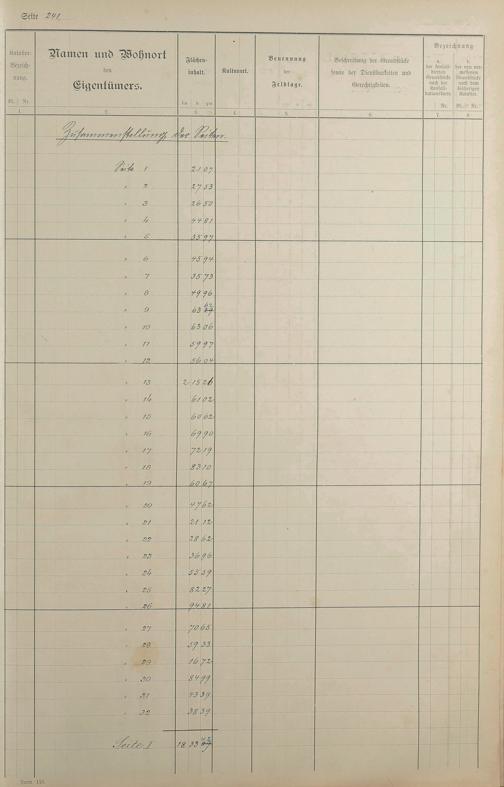 Seite 241
Kataster-
Bezeich-
nung.
Bl. Nr.
Namen und Wohnort
des
Eigentümers.
Flächen-
inhalt.
ha a qm
Kulturart.
Benennung
der
Feldlage.
Beschreibung der Grundstücke
sowie der Dienstbarkeiten und
Gerechtigkeiten.
Bezeichnung
Nr.
Bl. Nr.
1. 2. 3. 4. 5. 6. 7. 8.
Zusammenstellung der Seiten.
Seite 1 21 07
" 2 27 53
" 3 26 50
" 4 44 81
" 5 35 97
" 6 45 94
" 7 35 73
" 8 49 96
" 9 63
" 10 63 06
" 11 59 97
" 12 56 04
" 13 2 15 26
" 14 61 02
" 15 60 62
" 16 69 90
" 17 72 19
" 18 83 10
" 19 60 67
" 20 47 62
" 21 21 12
" 22 28 62
" 23 36 96
" 24 55 59
" 25 82 27
" 26 94 81
" 27 70 65
" 28 59 33
" 29 16 72
" 30 84 99
" 31 73 39
" 32 38 39
Seite I 18 33